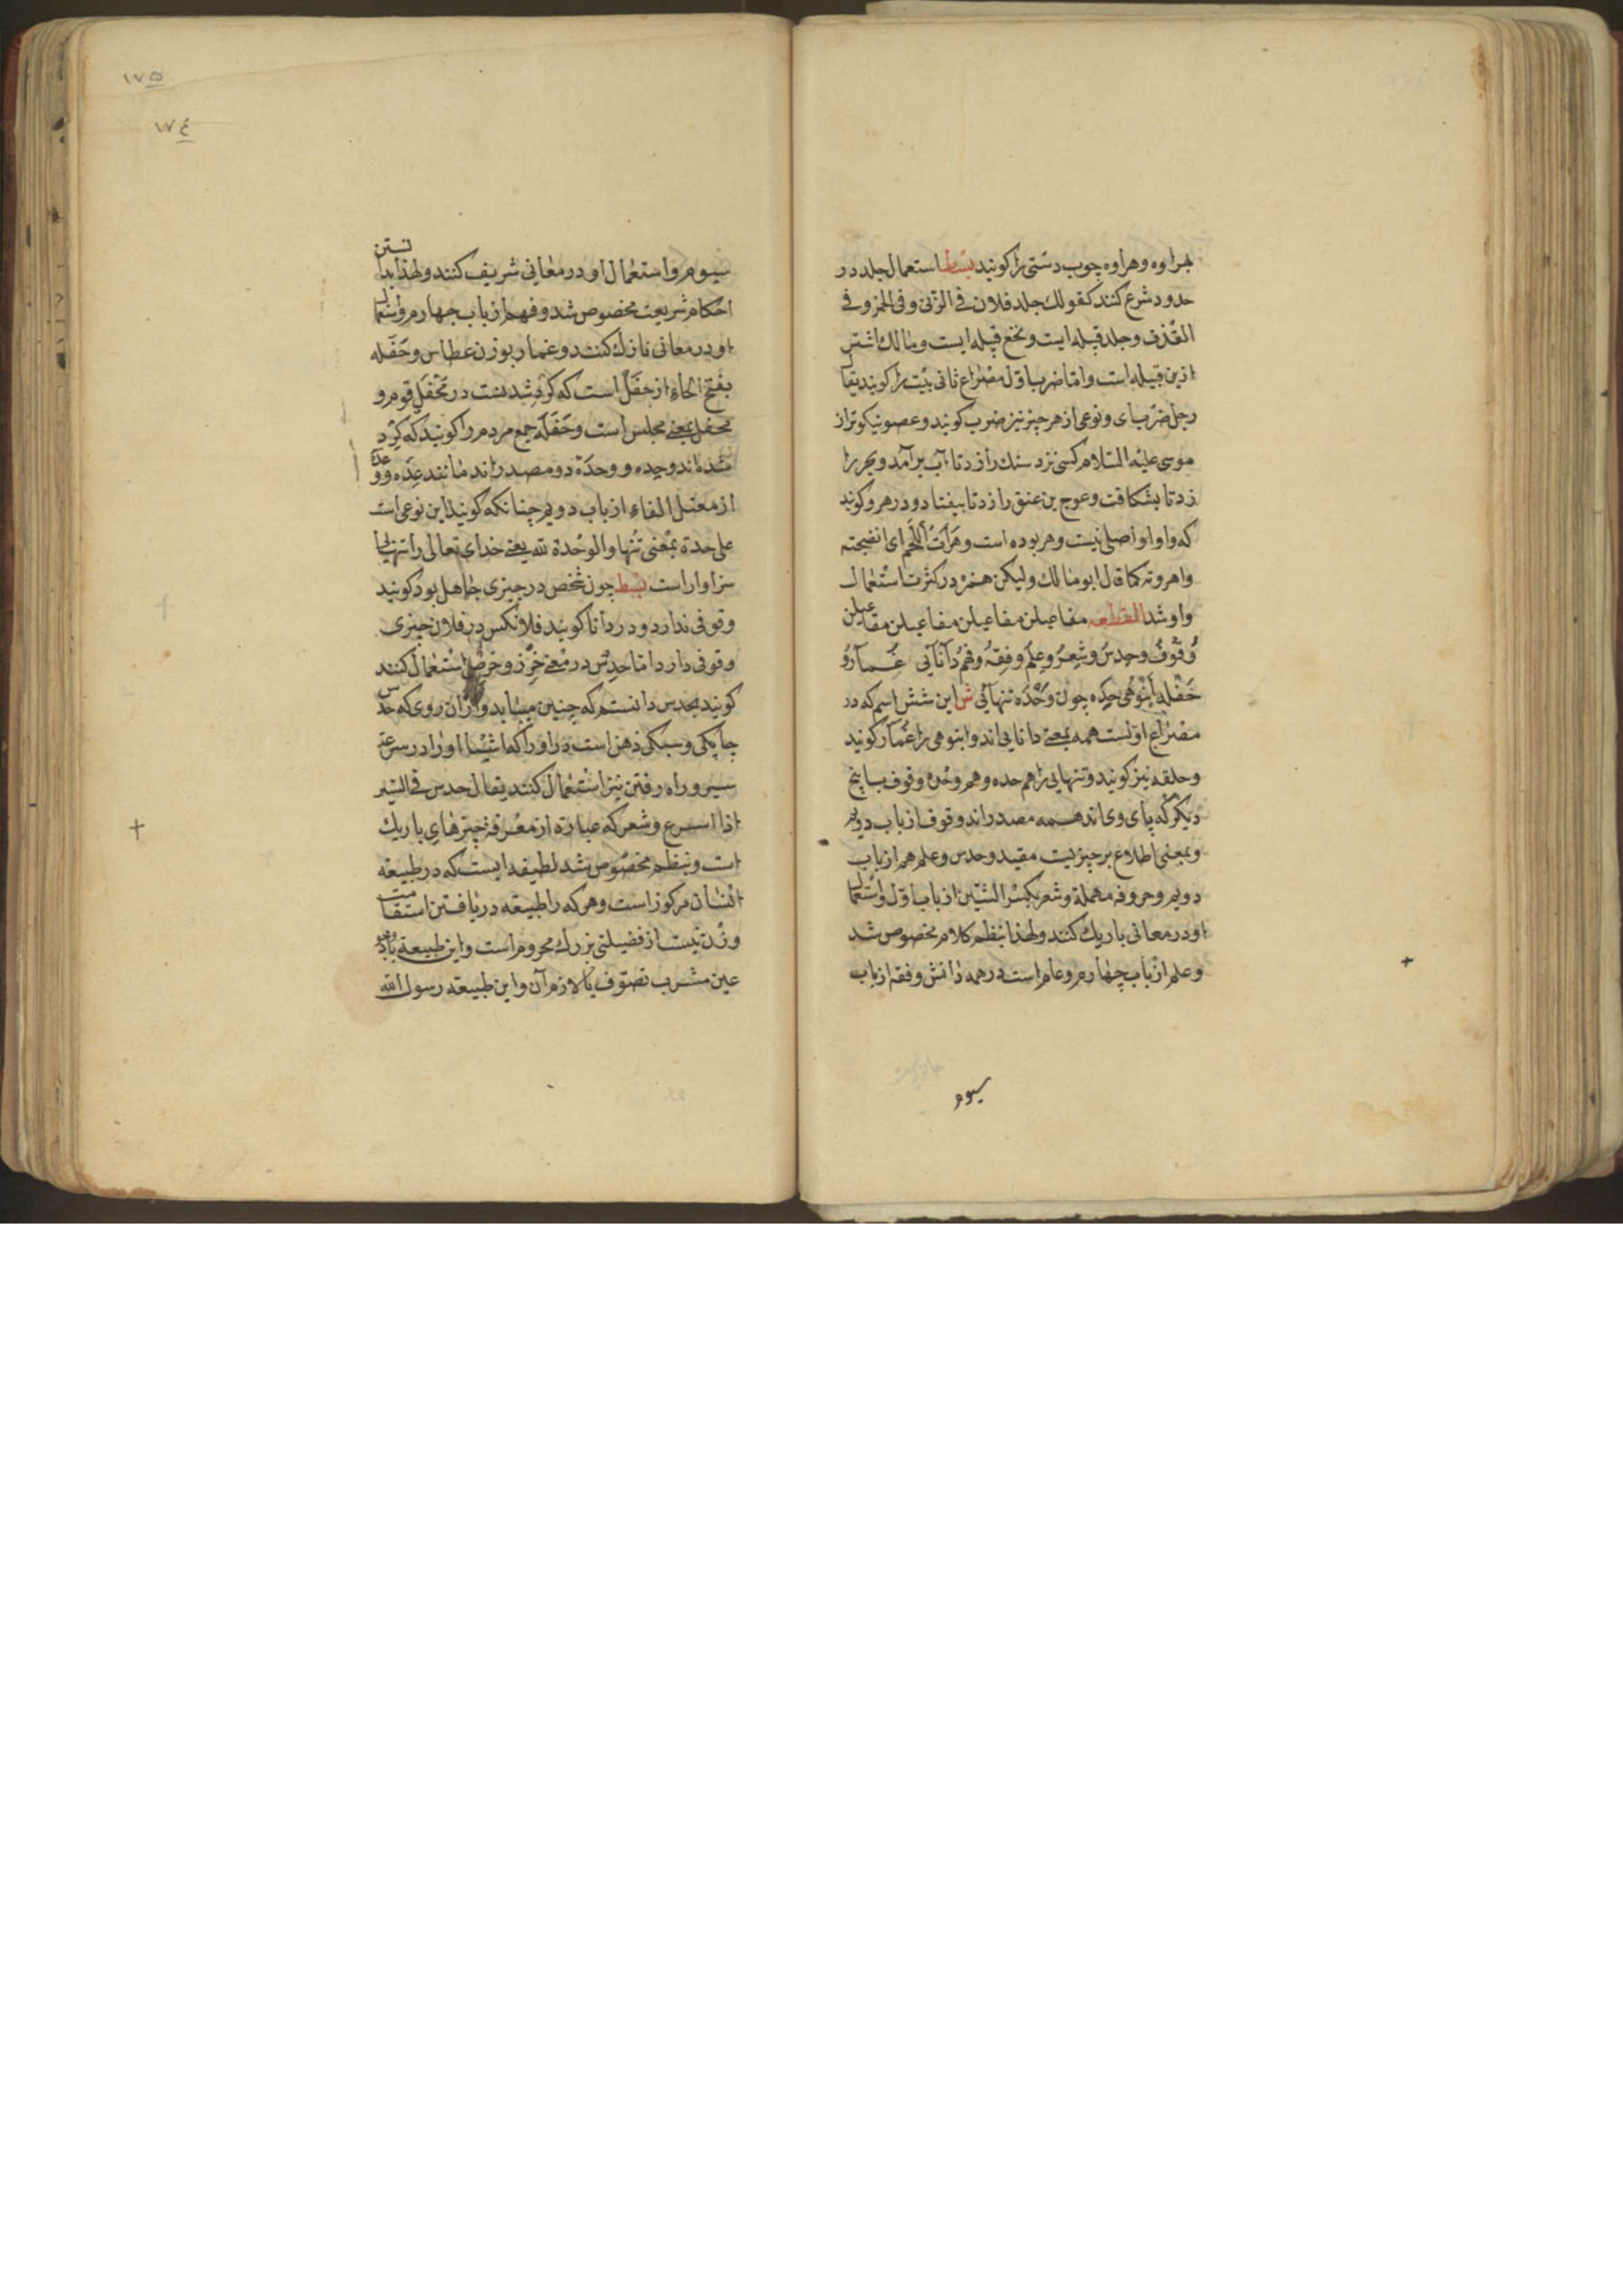 هراوه وهراوه چوب دستی را کویند بسط استعمال جلد در
حدود شرع کنند کقولك جلد فلان فی الزنی وفی الخمر وفی
القذف وجلد قبیله ایست ونخع قبیله ایست ومالك اشتر
ازین قبیله است واما ضرب اول مصراع ثانی بیت را کویند یقال
رجل ضرب ای ونوعی از هر چیز نیز ضرب کویند وعصو نیکوتر از
موسی علیه السلام کسی نزد سنك را زد تا آب برآمد وبحر را
زد تا بشکافت وعوج بن عنق را زد تا بیفتاد ودر هرو کویند
که واو او اصلی نیست وهر بوده است وهرات اللحم ای انضجته
واهروته کما قال ابو مالك ولیکن همزه در کثرت استعمال
واو شد القطعه مفاعیلن مفاعیلن مفاعیلن مفاعیلن
وقوف وحدس وشعر وعلم وفقه وفهم دانائی غمارو
حفله انبوهی حده چون وحده تنهائی ش این شش اسم که در
مصراع اولست همه بمعنی دانایی اند وانبوهی را غمار کویند
وحلقه نیز کویند وتنهایی را هم حده وهم وحده وقوف با پنج
دیکر که با وی اند همه مصدر اند وقوف از باب دویم
وبمعنی اطلاع بر چیزیست مقید وحدس وعلم هم از باب
دویم وحروفه مهملة وشعر بکسر الشین از باب اول واستعمال
او در معانی باریك کنند ولهذا بنظم کلام مخصوص شد
وعلم از باب چهارم وعام است در همه دانش وفقه از باب
سیوم
١٧٥
١٧٤
سیوم واستعمال او در معانی شریف کنند ولهذا بدانستن
احکام شریعت مخصوص شد وفهم از باب چهارم واستعمال
او در معانی نازك کنند وغمار بوزن عطاس وحفله
بفتح الحاء از حفل است که کرد شدنست در محفل قوم و
محفل بمعنی مجلس است وحفله جمع مردم را کویند که کرد
شده اند وحده ووحدة دو مصدر اند مانند عده ووعده
از معتل الفاء از باب دویم چنانکه کویند این نوعی است
علی حدة بمعنی تنها والوحدة لله یعنی خدای تعالی را تنهایی
سزاوار است بسط چون شخص در چیزی جاهل بود کویند
وقوفی ندارد ودر دانا کویند فلانکس در فلان چیزی
وقوفی دارد اما حدس در معنی حرز وخرص استعمال کنند
کویند بحدس دانستم که چنین میباید واز آن روی که حدس
چابکی وسبکی ذهن است در ادراك اشیا او را در سرعة
سیر وراه رفتن نیز استعمال کنند یقال حدس فی السیر
اذا اسرع وشعر که عبارة از معرفة چیزهای باریك
است وبنظم مخصوص شد لطیفه ایست که در طبیعة
انسان مرکوز است وهر که را طبیعة در یافتن استقامت
وزن نیست از فضیلتی بزرك محروم است واین طبیعة
عین مشرب تصوف یا لازم آن واین طبیعة رسول الله